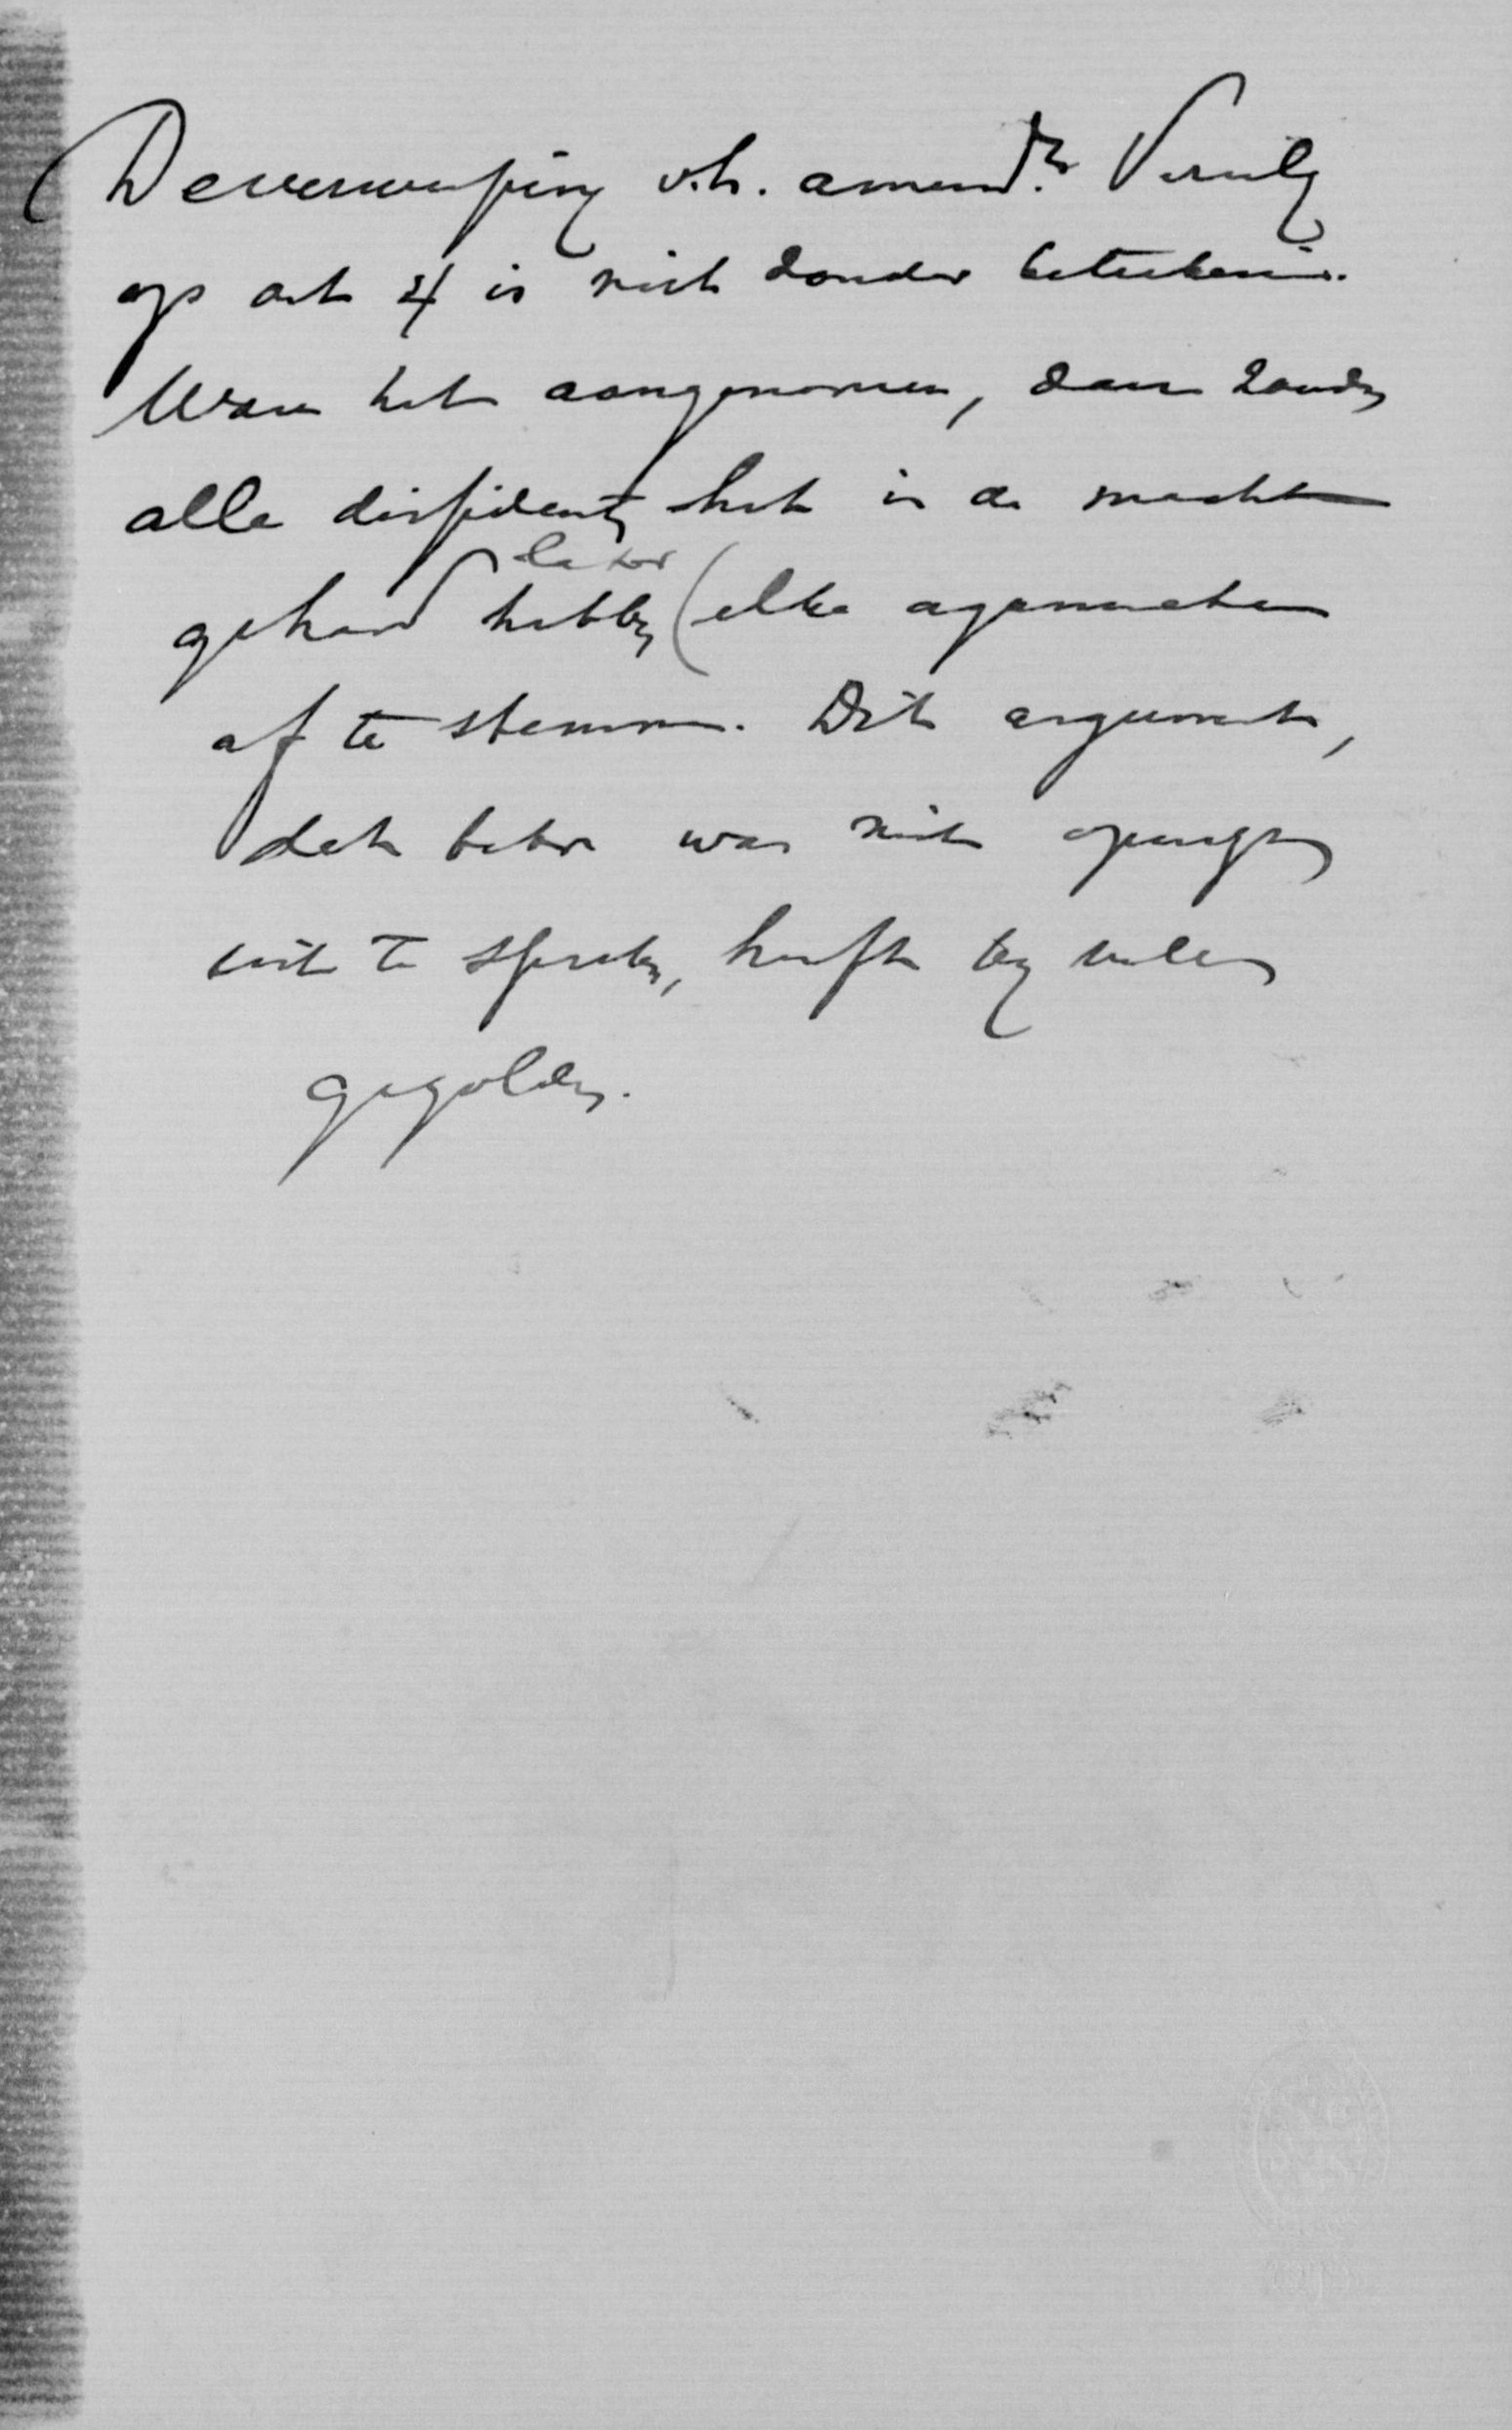 De verwerping v.h. amendt Versluys
op art 4 is niet zonder beteekenis.
Ware het aangenomen, dan zouden
alle dissidenten het in de macht
gehad hebben later (elke
af te stemmen. Dit argument,
dat beter was niet openlyk
uit te spreken, heeft by velen
gegolden.